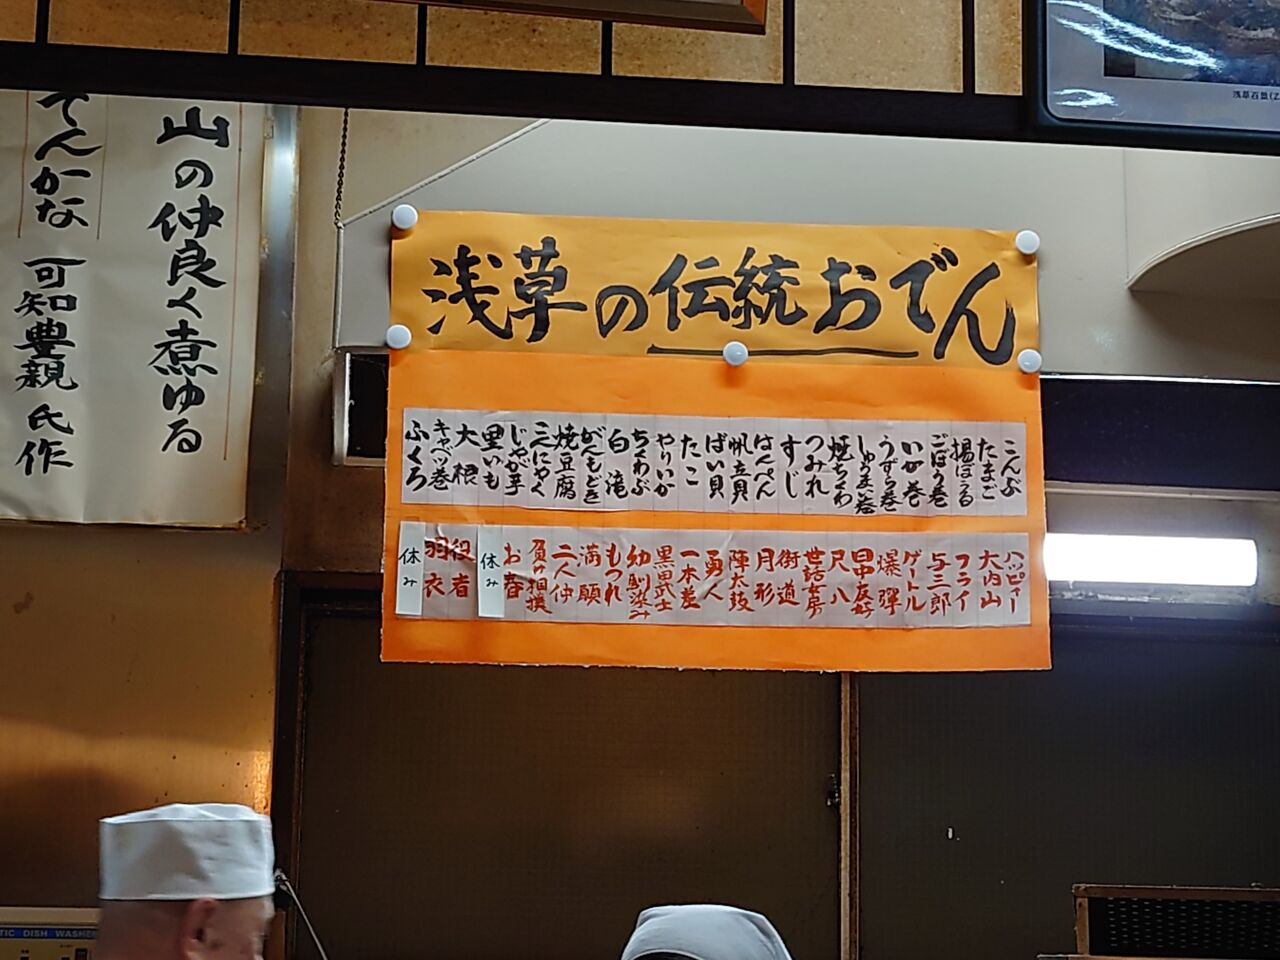 浅草の伝統おでん
こんぶ
たまご
揚ぼーる
ごぼう巻
いか巻
うずら巻
しゅうまい巻
焼ちくわ
つみれ
すじ
はんぺん
帆立貝
ばい貝
たこ
やりいか
ちくわぶ
白滝
がんもどき
焼豆腐
こんにゃく
じゃが芋
里いも
大根
キャベツ巻
ふくろ
ハッピャー
大内山
フライ
与三郎
ゲートル
爆弾
田中友好
尺八
世話女房
街道
月形
陣太鼓
勇人
一本差
黒田武士
幼馴染み
もつれ
満願
二人仲
負け相撲
お春
休み
役者
羽衣
休み
山の仲良く煮ゆる
てんかな 可知豊親 氏作
浅草百景
TIC DISH WASHE